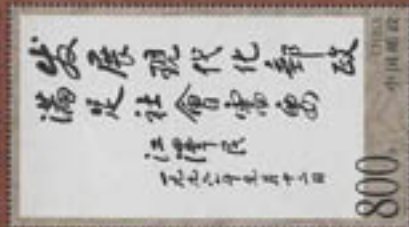 发展现代化邮政
满足社会需要
江泽民
中国邮政
CHINA
800